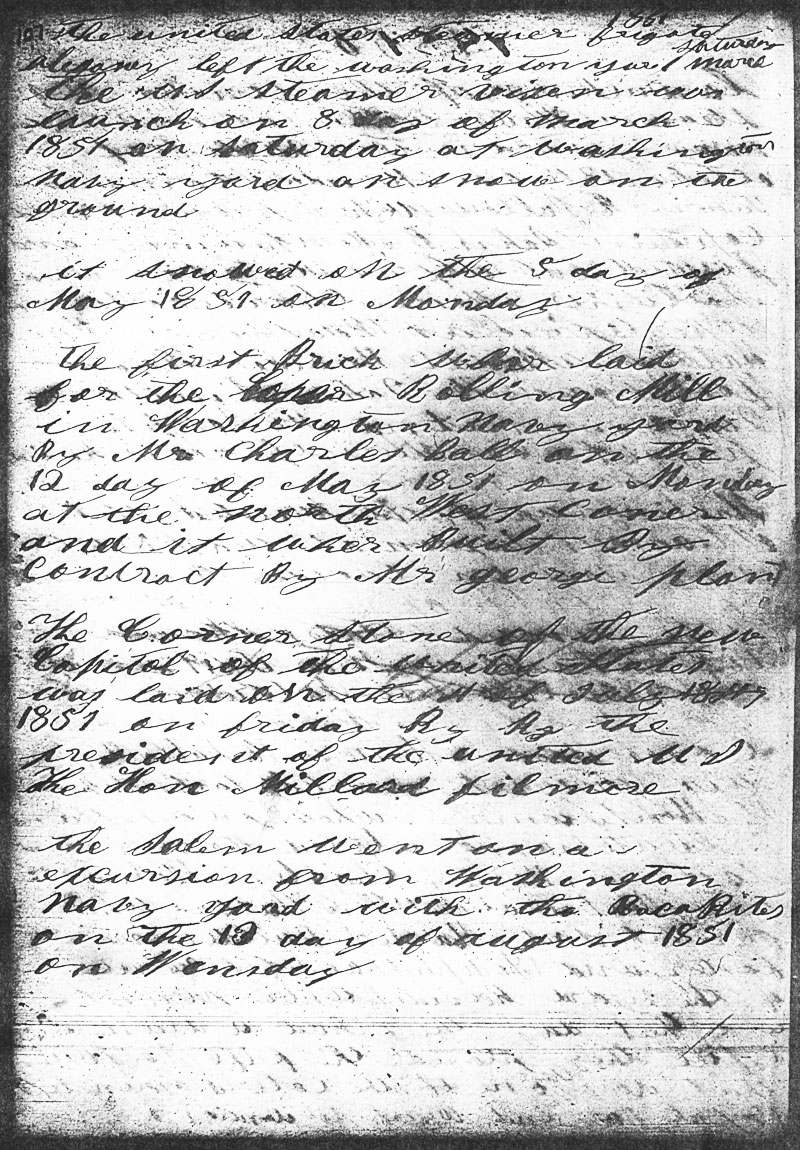 1851
the united States steamer frigate
alegany left the washington yard Saturday March
the US steamer Vixen was
launch on 8 day of March
1851 on Saturday at Washington
Navy yard an snow on the
ground
it snowed on the 5 day of
May 1851 on Monday
The first Brick wher laid
for the Coper Rolling Mill
in Washington Navy yard
By Mr Charles Ball on the
12 day of May 1851 on Monday
at the north West Corner
and it wher Built By
Contract By Mr george plant
The Corner Stone of the new
Capitol of the United States
was laid on the 4 of July
1851 on friday By By the
president of the united U S
The Hon Millard filmore
the Salem went on a
excursion from Washington
Navy yard with the
on the 13 day of august 1851
on Wensday